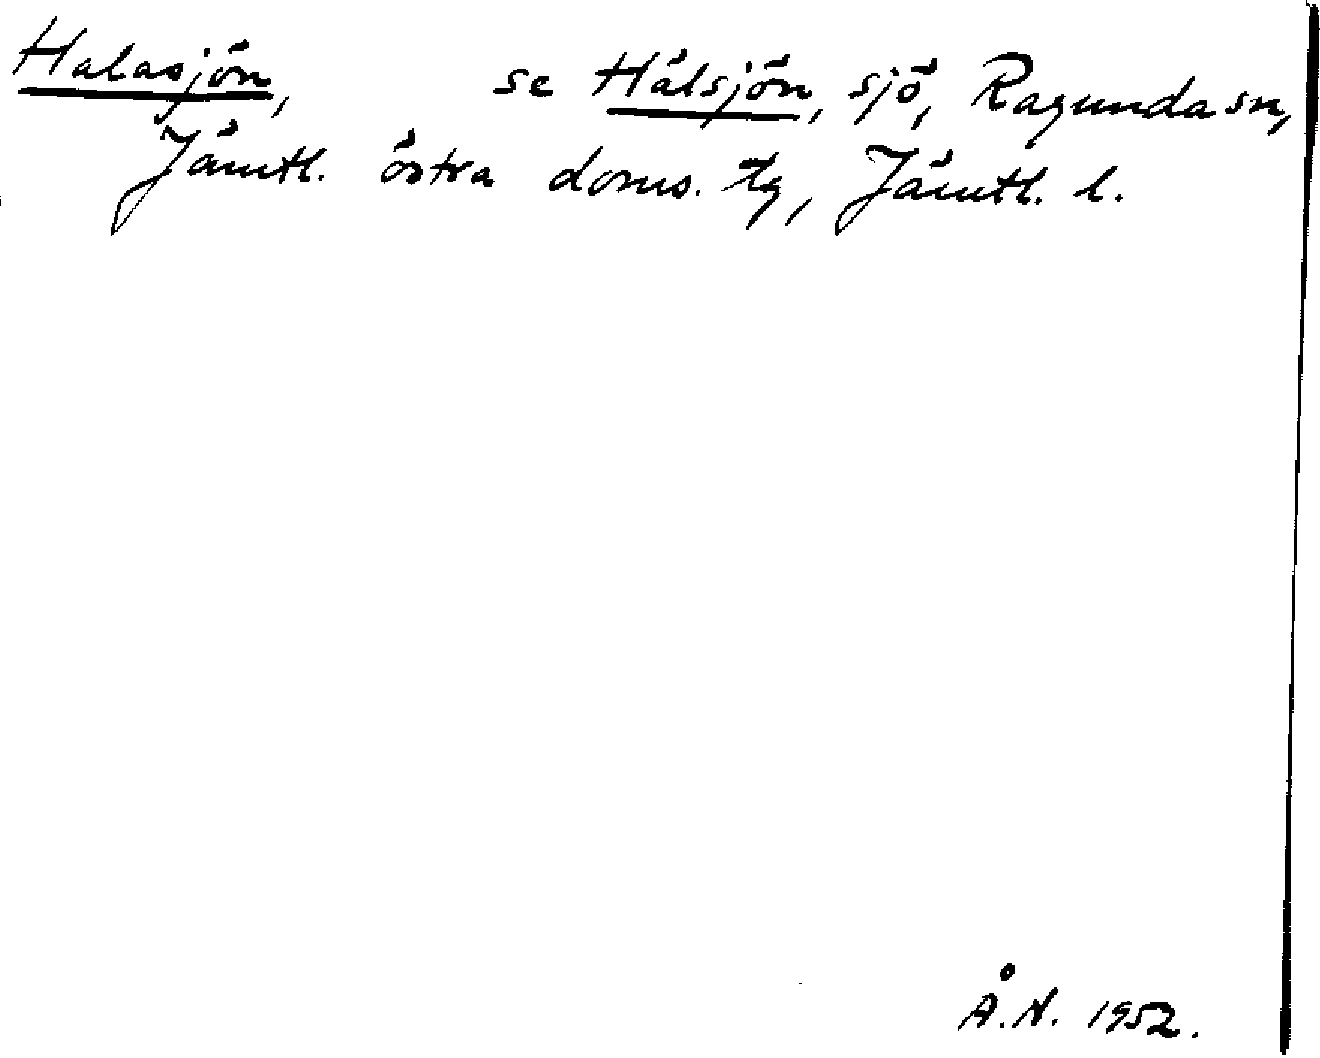 Halasjön, se Hälsjön, sjö, Ragunda sn,
Jämtl. östra doms. tg, Jämtl. l.
Å.N. 1952.